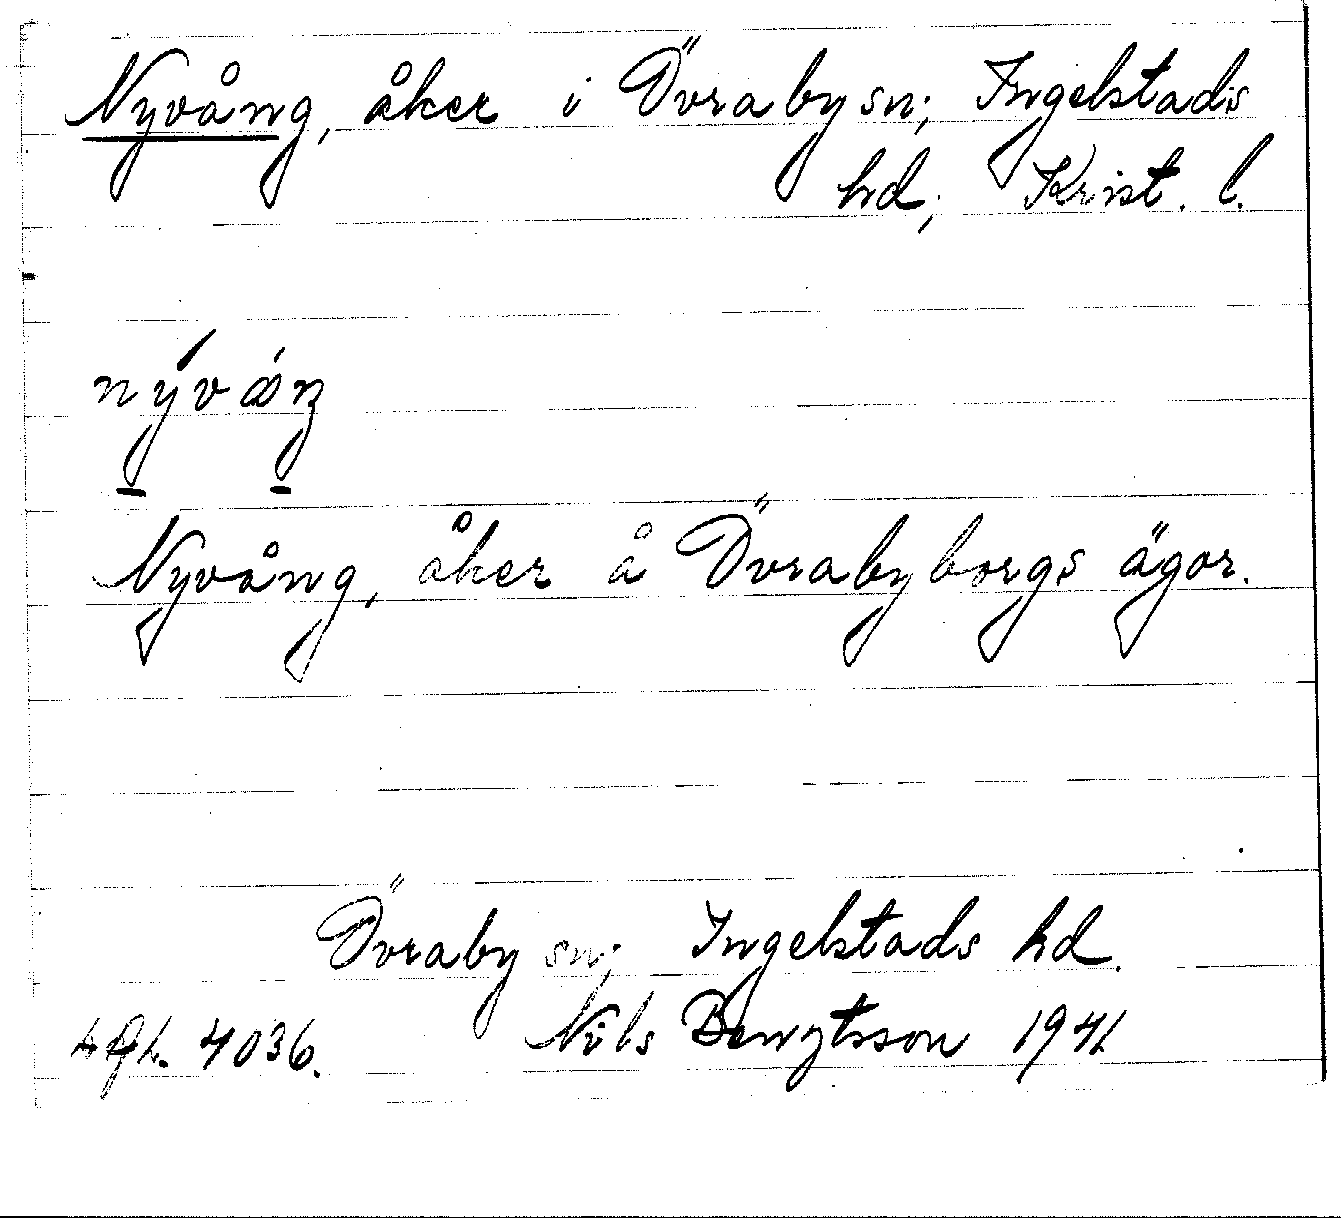 Nyvång, åker i Övraby sn; Ingelstads
hd; Krist. l.
nývǻŋ
Nyvång, åker å Övrabyborgs ägor.
Övraby sn; Ingelstads hd.
4036. Nils Bengtsson 1941